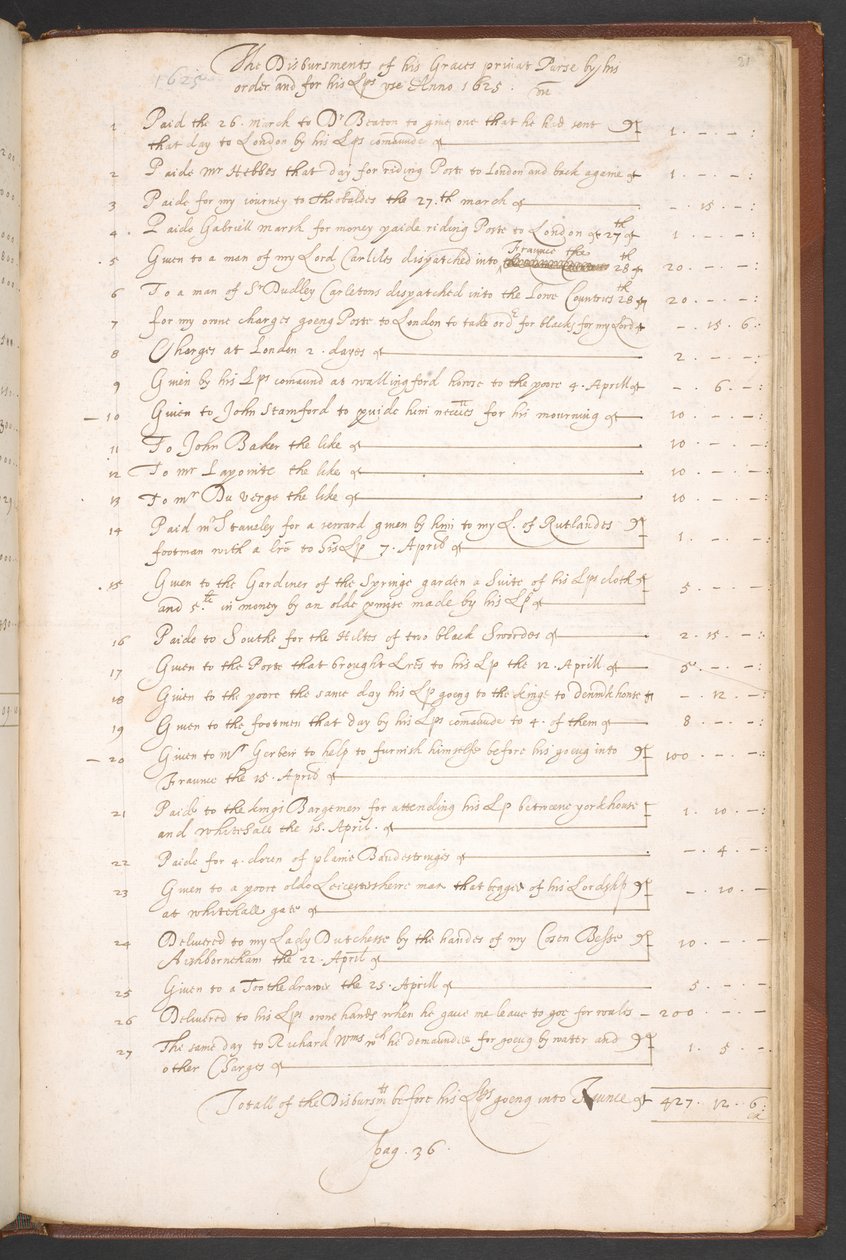 21
1625
The Disbursments of his Graces privat Purse by his
order and for his Lps vse Anno 1625.
1 Paid the 26. march to Dr Beaton to give one that he had sent
that day to London by his Lps comaunde 1 . – . – :
2 Paide mr Hebbes that day for riding Poste to London and back againe 1 . – . – :
3 Paide for my iourney to Theobaldes the 27.th march – . 15 . – :
4 Paide Gabriell marsh for money paide riding Poste to London 27th 1 . – . – :
5 Given to a man of my Lord Carliles dispatched into Fraunce the 28th 20 . – . – :
6 To a man of Sr Dudley Carletons dispatched into the Lowe Countries 28th 20 . – . – :
7 for my owne charges goeng Poste to London to take ordr for blacks for my Lord – . 15 . 6 :
8 Charges at London 2. dayes 2 . – . – :
9 Given by his Lps comaund at wallingford howse to the poore 4. Aprill – . 6 . – :
10 Given to John Stamford to pvide him necries for his mourning 10 . – . – :
11 To John Baker the like 10 . – . – :
12 To mr Lapointe the like 10 . – . – :
13 To mr Du verge the like 10 . – . – :
14 Paid mr Staveley for a reward given by him to my L. of Rutlandes
footman with a lre to his Lp 7. Aprill 1 . – . –
15 Given to the Gardiner of the Springe garden a Suite of his Lps cloth
and 5.li in money by an olde pmise made by his Lp 5 . – . –
16 Paide to Southe for the Hiltes of two black Swordes 2 . 15 . – :
17 Given to the Porte that brought Lres to his Lp the 12. Aprill 5 . – . – :
18 Given to the poore the same day his Lp goeng to the kinge to denmk house – . 12 . – :
19 Given to the footmen that day by his Lps comaunde to 4. of them 8 . – . – :
20 Given to mr Gerbeir to help to furnish himselfe before his goeng into
Fraunce the 15. Aprill 100 . – . – :
21 Paide to the kings Bargemen for attending his Lp betweene york house
and whitehall the 15. Aprill. 1 . 10 . – :
22 Paide for 4. dozen of plaine Bandestringes – . 4 . – :
23 Given to a poore olde Leicestersheire man that begged of his Lordship
at whitehall gate – . 10 . –
24 Delivered to my Lady Dutchesse by the handes of my Cosen Besse
Aishborneham the 22. Aprill 10 . – . –
25 Given to a Toothedrawer the 25. Aprill 5 . – . –
26 Delivered to his Lps owne hands when he gave me leave to goe for wales – 200 . – . –
27 The same day to Richard Wms wch he demaunded for goeng by water and
other Charges 1 . 5 . –
Totall of the Disbursmts before his Lps goeng into Fraunce 427 . 12 . 6 :
pag . 36 .